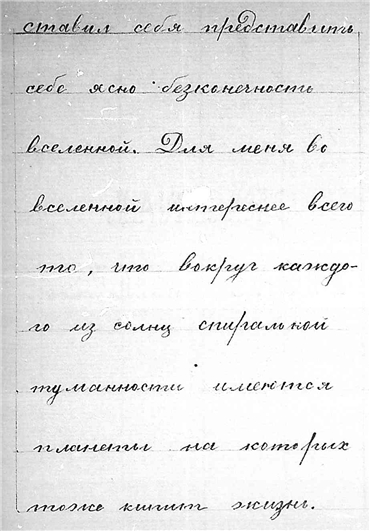 ставил себя представить
себе ясно безконечность
вселенной. Для меня во
вселенной интереснее всего
то, что вокруг каждо-
го из солнц спиральной
туманности имеются
планеты на которых
тоже кипит жизнь.